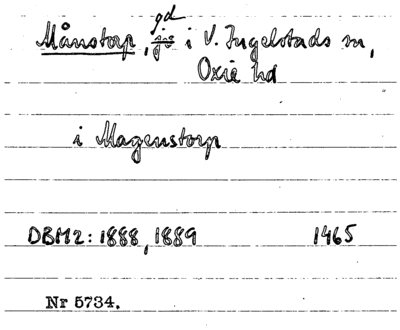 Månstorp, gd i V. Ingelstads sn,
Oxie hd
i Magenstorp
DBM2: 1888, 1889 1465
Nr 5734.